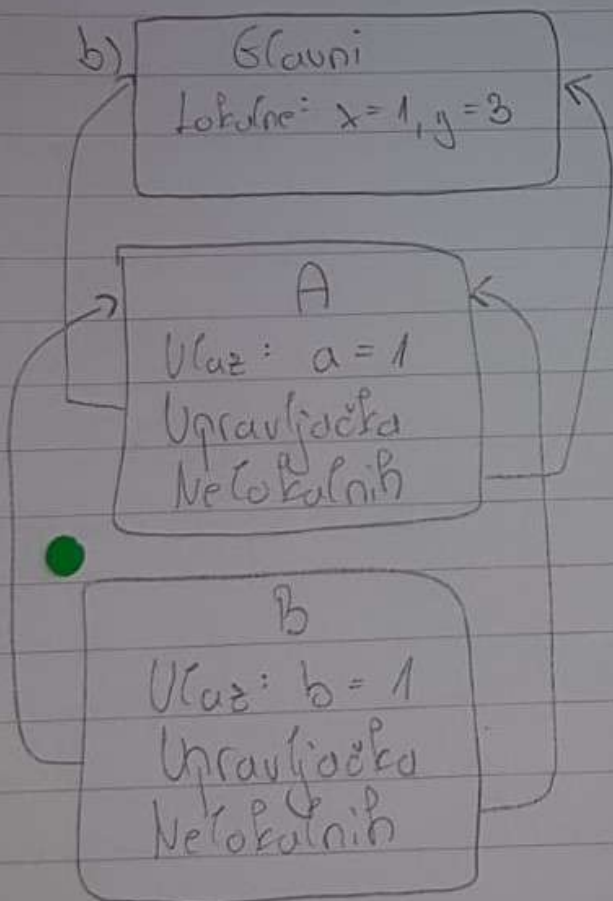 b)
Glavni
Lokalne: x=1, y=3
A
Ulaz: a=1
Upravljačka
Nelokalnih
B
Ulaz: b=1
Upravljačka
Nelokalnih